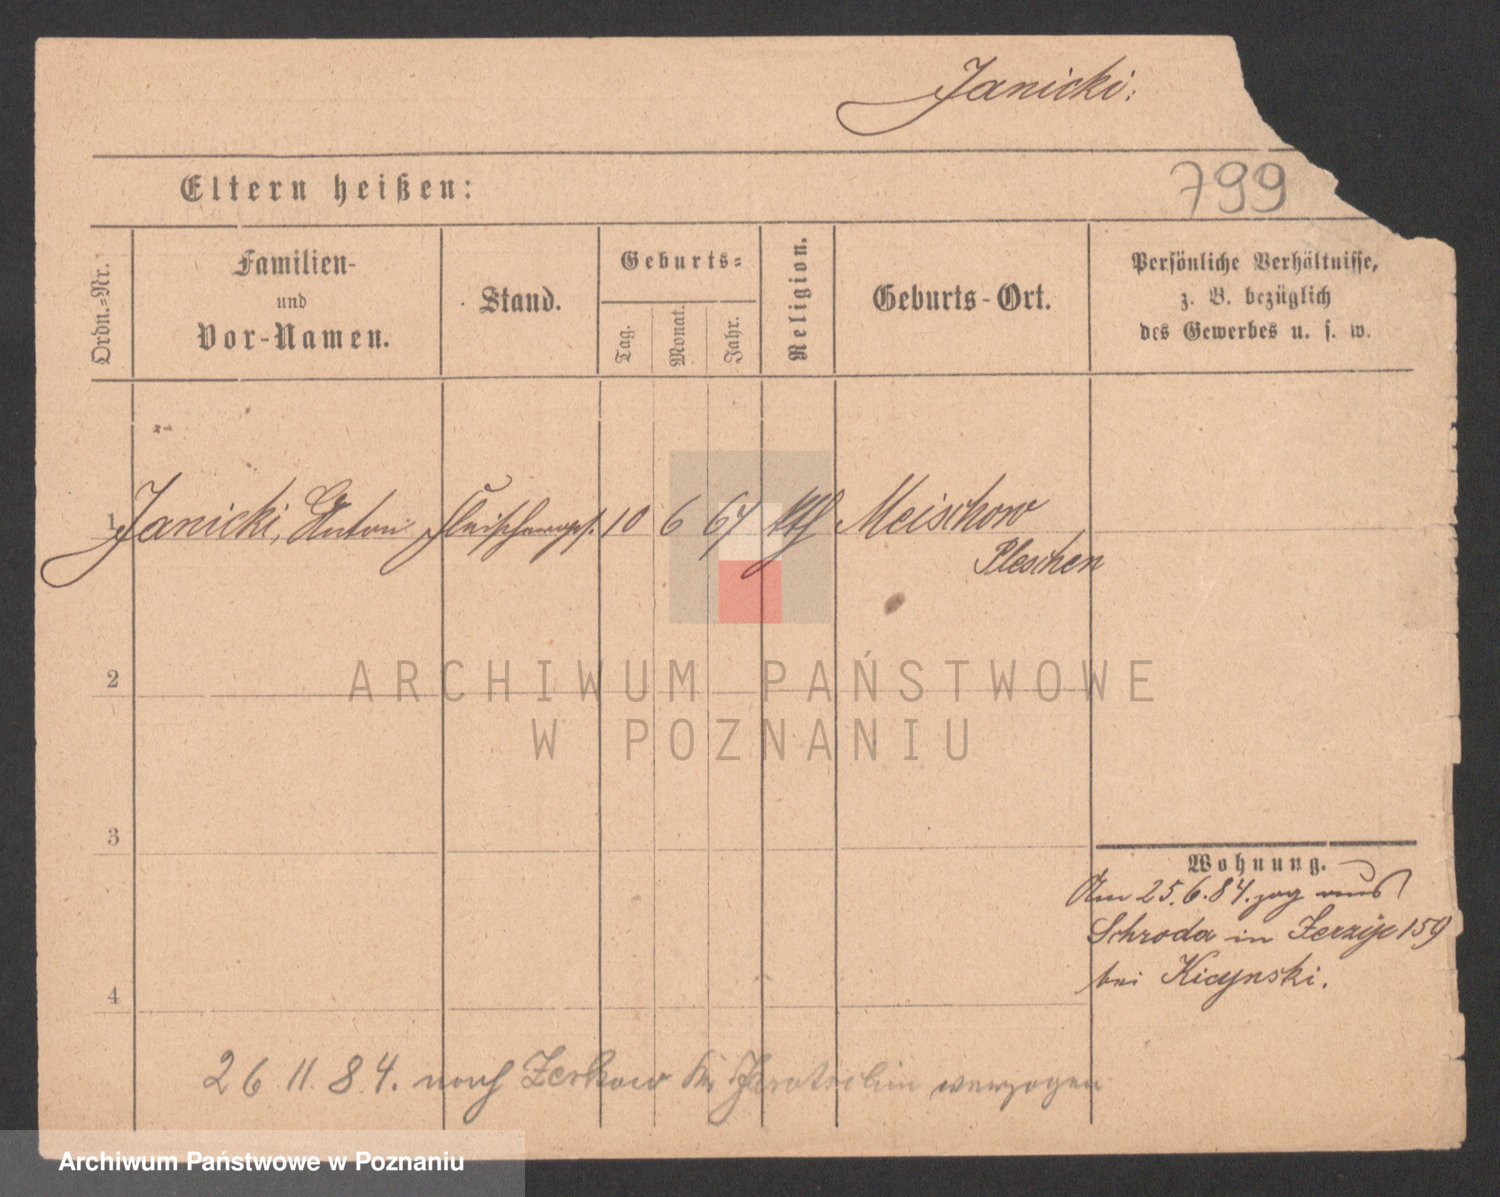 Janicki.
799
Eltern heißen:
Ordn.=Nr.
Familien-
und
Vor-Namen.
Stand.
Geburts=
Tag.
Monat.
Jahr.
Religion.
Geburts-Ort.
Persönliche Verhältnisse,
z. B. bezüglich
des Gewerbes u. s. w.
1 Janicki, Anton 10 6 67 kth Meischow
Pleschen
2
ARCHIWUM PAŃSTWOWE
W POZNANIU
3
Wohnung.
Am 25.6.84. zog aus
Schroda in Jerzyce 159
bei Kicynski.
4
26. 11. 84. nach Zerkow Kr Jarotschin verzogen
Archiwum Państwowe w Poznaniu